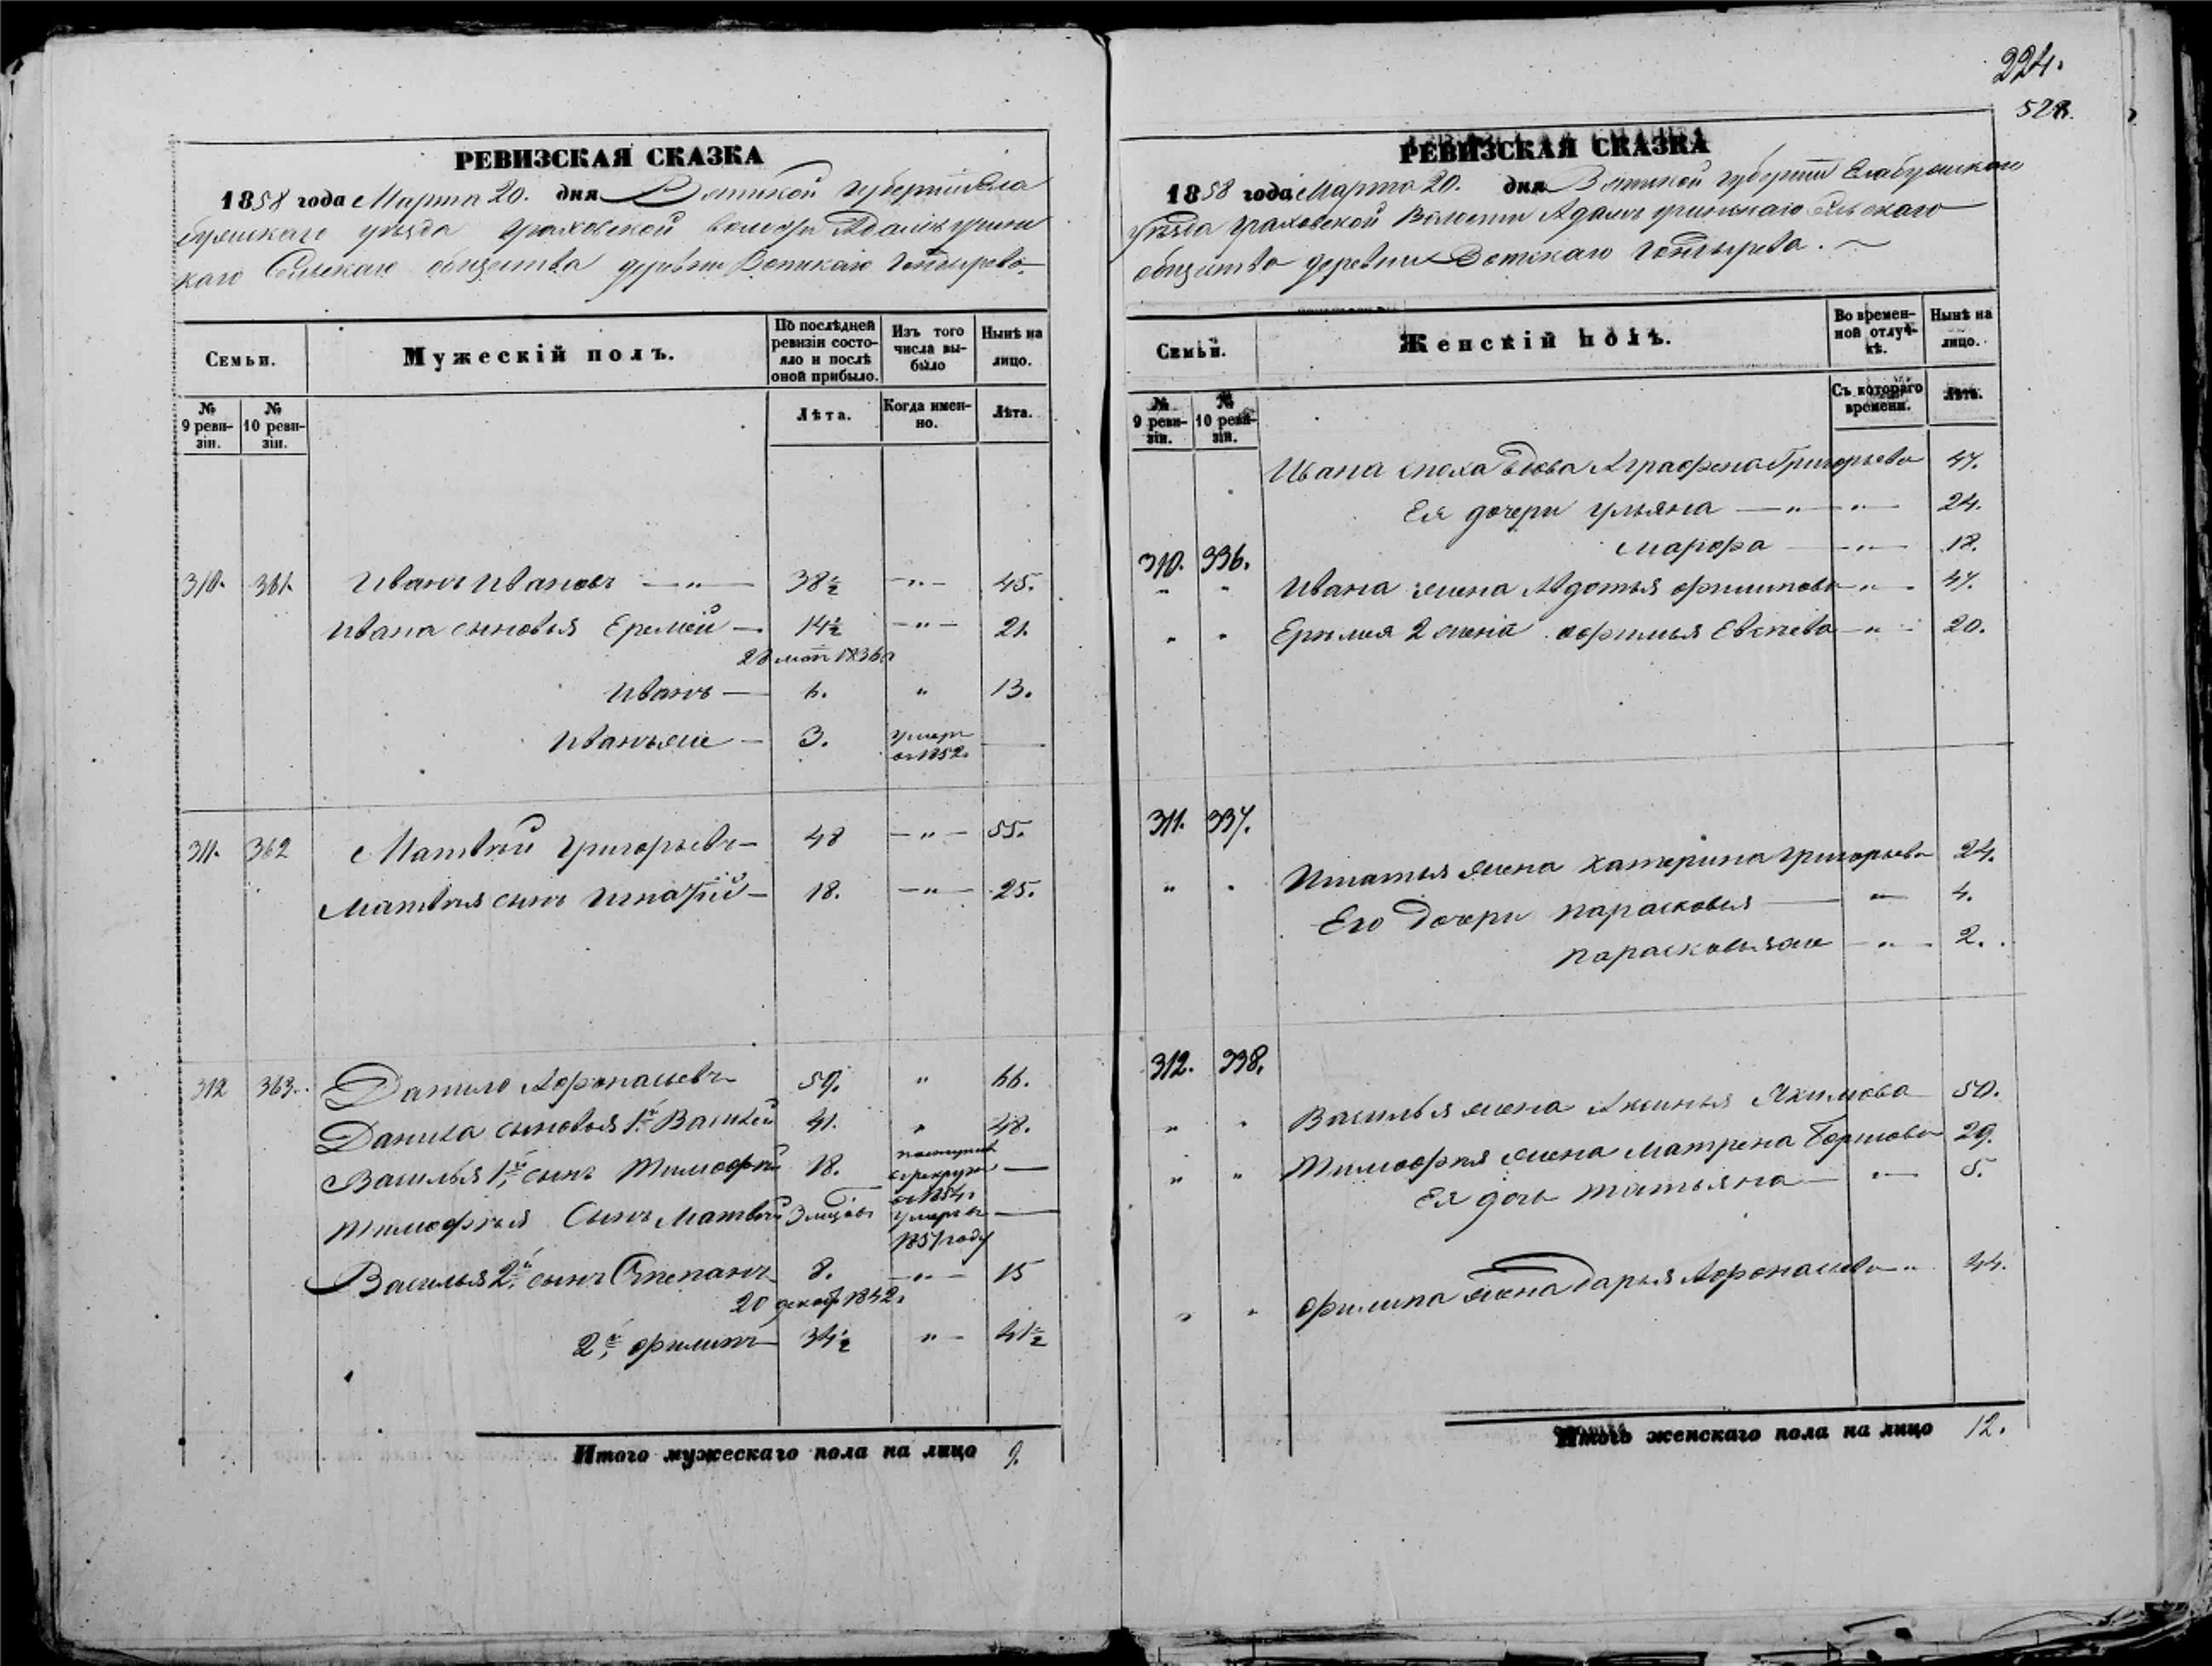 224.
528.
РЕВИЗСКАЯ СКАЗКА
1858 года Марта 20. дня Вятской губернии Ела
бужскаго уѣзда Граховской волости Адамъ учин
каго Сельскаго общества деревни Вотскаго Гондырева
Семьи.
Мужескій полъ.
По послѣдней ревизіи состояло и послѣ оной прибыло.
Изъ того числа выбыло
Нынѣ на лицо.
№ 9 ревизіи.
№ 10 ревизіи.
Лѣта.
Когда именно.
Лѣта.
310. 361. Иванъ Ивановъ — " — 38½ — " — 45.
Ивана сыновья Еремей — 14½ — " — 21.
1836
Иванъ — 6. " 13.
Иванъ же — 3. умеръ въ 1852. —
311. 362 Матвѣй Григорьевъ — 48 — " — 55.
Матвѣя сынъ Игнатій — 18. — " — 25.
312 363. Данило Афонасьевъ 59. " 66.
Данила сыновья 1й Василей 41. " 48.
Василья 1й сынъ Тимофѣй 18. поступилъ въ рекруты въ 1854. —
Тимофѣя Сынъ Матвѣй 3 мѣсяцовъ умеръ въ 1851 году —
Василья 2й сынъ Степанъ 8. — " — 15
20 декаб 1842.
2й Филипъ 34½ " — 41½
Итого мужескаго пола на лицо 9.
РЕВИЗСКАЯ СКАЗКА
1858 года Марта 20. дня Вятской губернии Елабужскаго
уѣзда Граховской Волости Адамъ учинскаго Сельскаго
общества деревни Вотскаго Гондырева.
Семьи.
Женскій полъ.
Во временной отлучкѣ.
Нынѣ на лицо.
№ 9 ревизіи.
№ 10 ревизіи.
Съ котораго времени.
Лѣта.
Ивана сноха вдова Аграфена Григорьева 47.
Ея дочери Ульяна — " — " — 24.
Марфа — " — 18.
310. 336.
" " Ивана жена Авдотья Филипова — " — 47.
" " Еремея 2 жена Евсѣева — " — 20.
311. 337.
" " Игнатья жена Катерина Григорьева 24.
Его Дочери Парасковья — " — 4.
Парасковья же — " — 2.
312. 338.
" " Василья жена Аксинья Якимова 50.
" " Тимофѣя жена Матрена Борисова 29.
Ея дочь Татьяна — " — 5.
" " Филипа жена Дарья Афонасьева — " 44.
Итого женскаго пола на лицо 12.